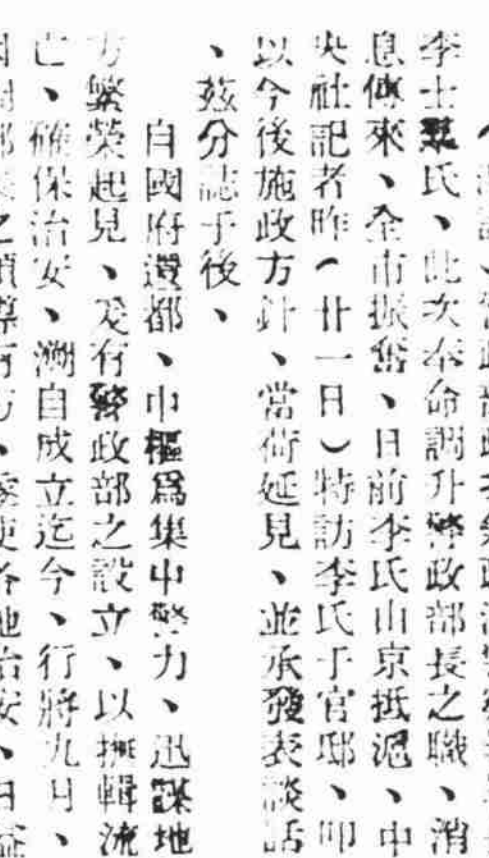 李士羣氏、此次奉命調升警政部長之職、消
息傳來、全市振奮、日前李氏由京抵滬、中
央社記者昨（廿一日）特訪李氏于官邸、叩
以今後施政方針、當荷延見、並承發表談話
、茲分誌于後、
自國府還都、中樞爲集中警力、迅謀地
方繁榮起見、爰有警政部之設立、以撫輯流
亡、確保治安、溯自成立迄今、行將九月、